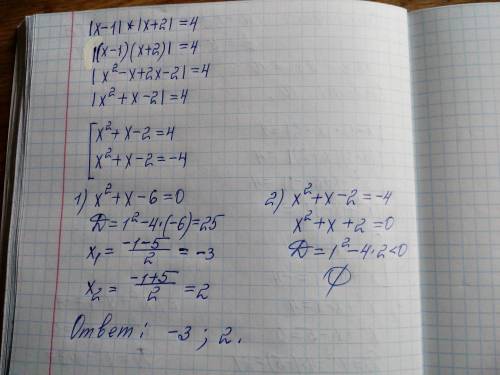 |x-1|*|x+2|=4
|(x-1)(x+2)|=4
|x²-x+2x-2|=4
|x²+x-2|=4
[x²+x-2=4
x²+x-2=-4
1) x²+x-6=0
D=1²-4*(-6)=25
x₁=(-1-5)/2=-3
x₂=(-1+5)/2=2
2) x²+x-2=-4
x²+x+2=0
D=1²-4*2<0
∅
Ответ: -3; 2.